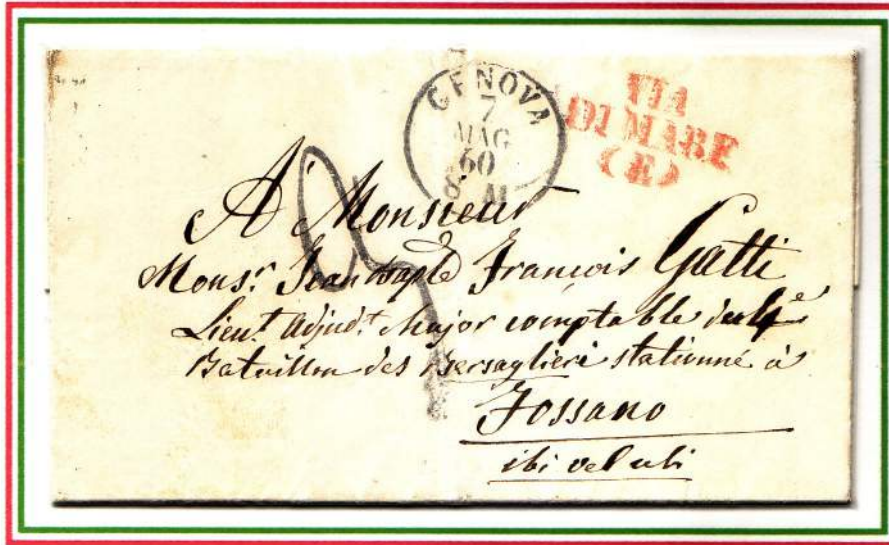 GENOVA
7
MAG
60
8 M
VIA
DI MARE
(E)
A Monsieur
Mons.r Jean Bapte François Gatti
Lieut. Adjud.t Major comptable du 4e
Bataillon des Bersaglieri stationné à
Fossano
ibi vel ubi